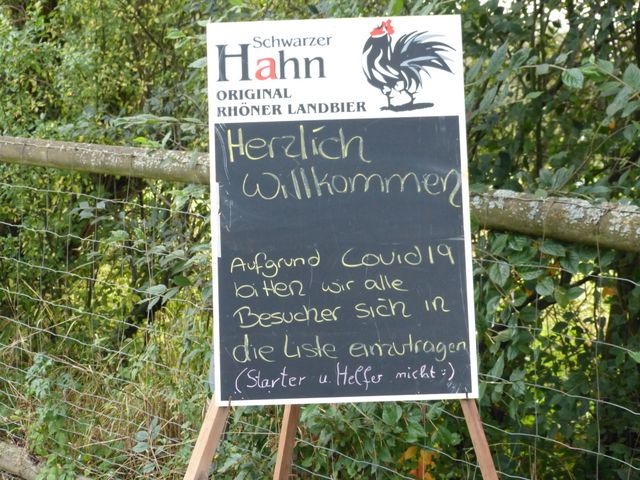 Schwarzer
Hahn
ORIGINAL
RHÖNER LANDBIER
Herzlich
Willkommen
Aufgrund Covid19
bitten wir alle
Besucher sich in
die Liste einzutragen
(Starter u. Helfer nicht :)